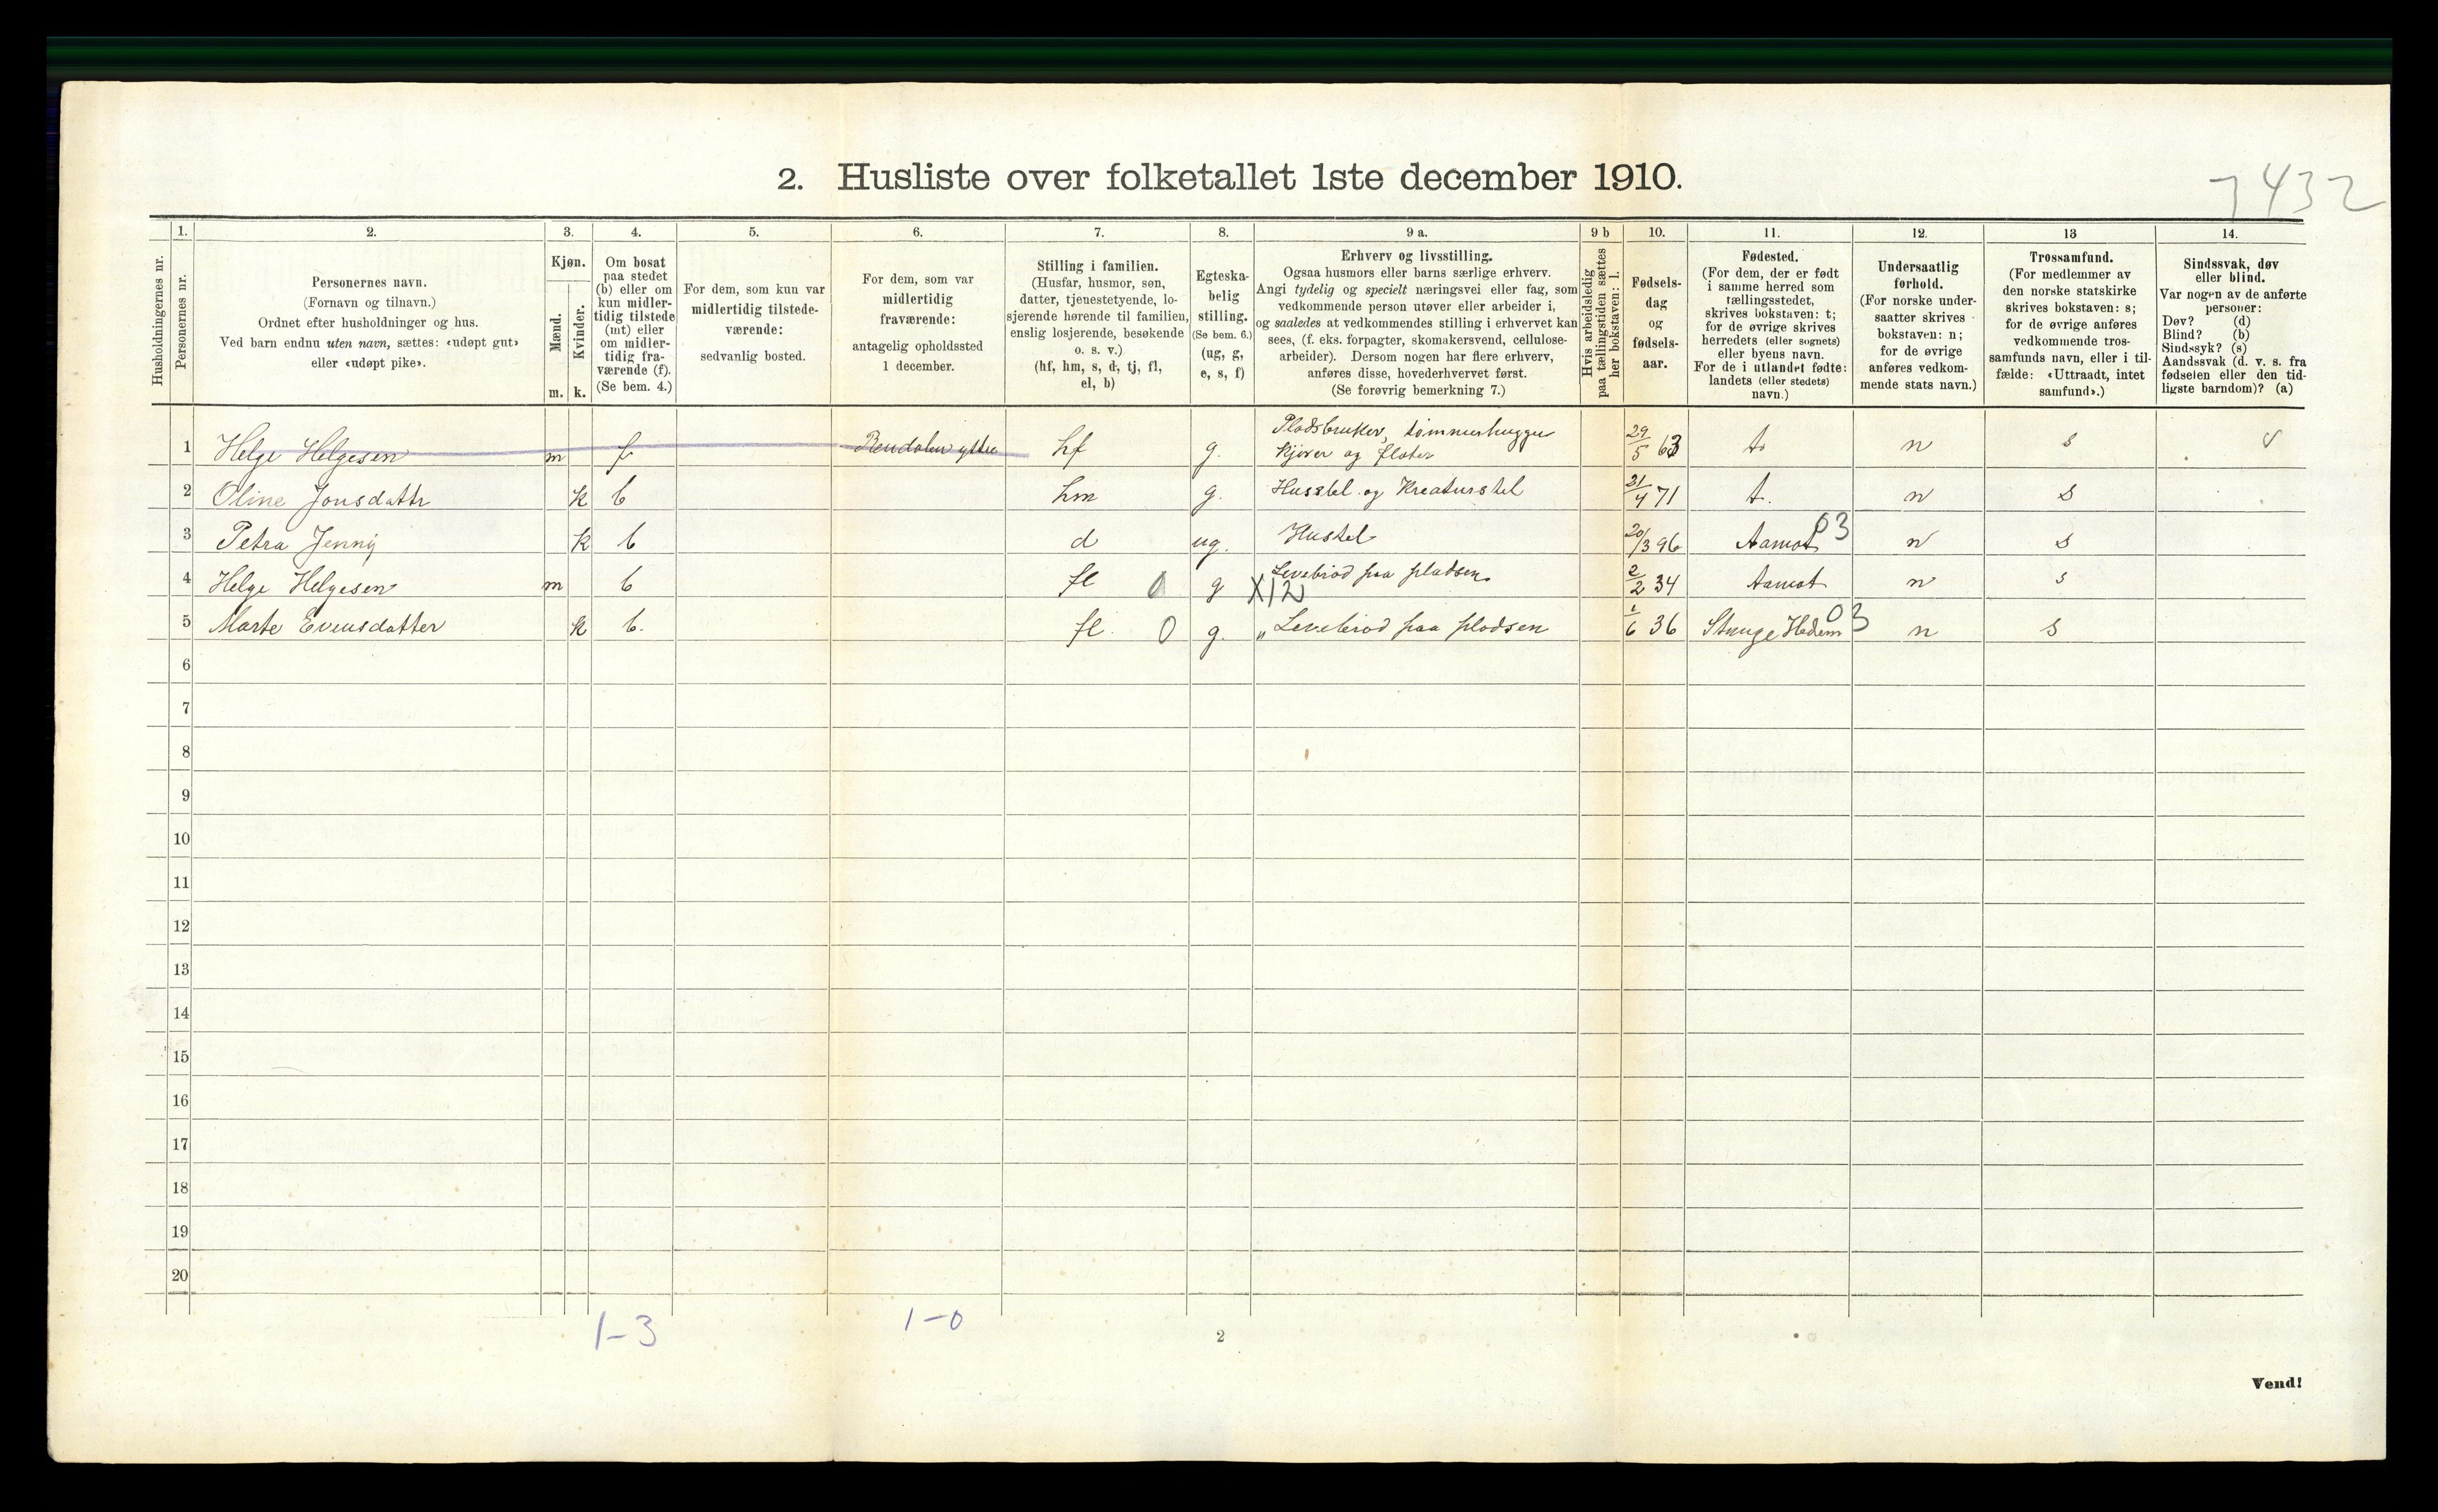 2. Husliste over folketallet 1ste december 1910.
7432
Husholdningernes nr.
1.
Personernes nr.
2.
Personernes navn.
(Fornavn og tilnavn.)
Ordnet efter husholdninger og hus.
Ved barn endnu uten navn, sættes: «udøpt gut»
eller «udøpt pike».
3.
Kjøn.
Mænd.
Kvinder.
m. k.
4.
Om bosat
paa stedet
(b) eller om
kun midler-
tidig tilstede
(mt) eller
om midler-
tidig fra-
værende (f).
(Se bem. 4.)
5.
For dem, som kun var
midlertidig tilstede-
værende:
sedvanlig bosted.
6.
For dem, som var
midlertidig
fraværende:
antagelig opholdssted
1 december.
7.
Stilling i familien.
(Husfar, husmor, søn,
datter, tjenestetyende, lo-
sjerende hørende til familien,
enslig losjerende, besøkende
o. s. v.)
(hf, hm, s, d, tj, fl,
el, b)
8.
Egteska-
belig
stilling.
(Se bem. 6.)
(ug, g,
e, s, f)
9 a.
Erhverv og livsstilling.
Ogsaa husmors eller barns særlige erhverv.
Angi tydelig og specielt næringsvei eller fag, som
vedkommende person utøver eller arbeider i,
og saaledes at vedkommendes stilling i erhvervet kan
sees, (f. eks. forpagter, skomakersvend, cellulose-
arbeider). Dersom nogen har flere erhverv,
anføres disse, hovederhvervet først.
(Se forøvrig bemerkning 7.)
9 b
Hvis arbeidsledig
paa tællingstiden sættes
her bokstaven: l.
10.
Fødsels-
dag
og
fødsels-
aar.
11.
Fødested.
(For dem, der er født
i samme herred som
tællingsstedet,
skrives bokstaven: t;
for de øvrige skrives
herredets (eller sognets)
eller byens navn.
For de i utlandet fødte:
landets (eller stedets)
navn.)
12.
Undersaatlig
forhold.
(For norske under-
saatter skrives
bokstaven: n;
for de øvrige
anføres vedkom-
mende stats navn.)
13
Trossamfund.
(For medlemmer av
den norske statskirke
skrives bokstaven: s;
for de øvrige anføres
vedkommende tros-
samfunds navn, eller i til-
fælde: «Uttraadt, intet
samfund».)
14.
Sindssvak, døv
eller blind.
Var nogen av de anførte
personer:
Døv? (d)
Blind? (b)
Sindssyk? (s)
Aandssvak (d. v. s. fra
fødselen eller den tid-
ligste barndom)? (a)
1 Helge Helgesen m f Rendalen ytter hf g. Pladsbruker, tømmerhugger
kjører og fløter 29/5 63 t. n s
2 Oline Jonsdattr k b hm g. Husstel og Kreaturstel 21/4 71 t. n s
3 Petra Jenny k b d ug. Hustel 20/3 96 Aamot 03 n s
4 Helge Helgesen m b fl 0 g X12 Levebrød paa pladsen 2/2 34 Aamot n s
5 Marte Evensdatter k b. fl. 0 g. „ Levebrød paa pladsen 1/6 36 Stange Hedem 03 n s
6
7
8
9
10
11
12
13
14
15
16
17
18
19
20
1-3
1-0
2
Vend!